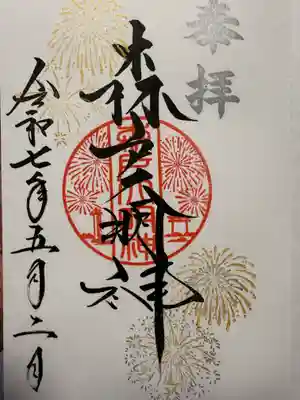 奉拝
森戸大明神
令和七年五月二日